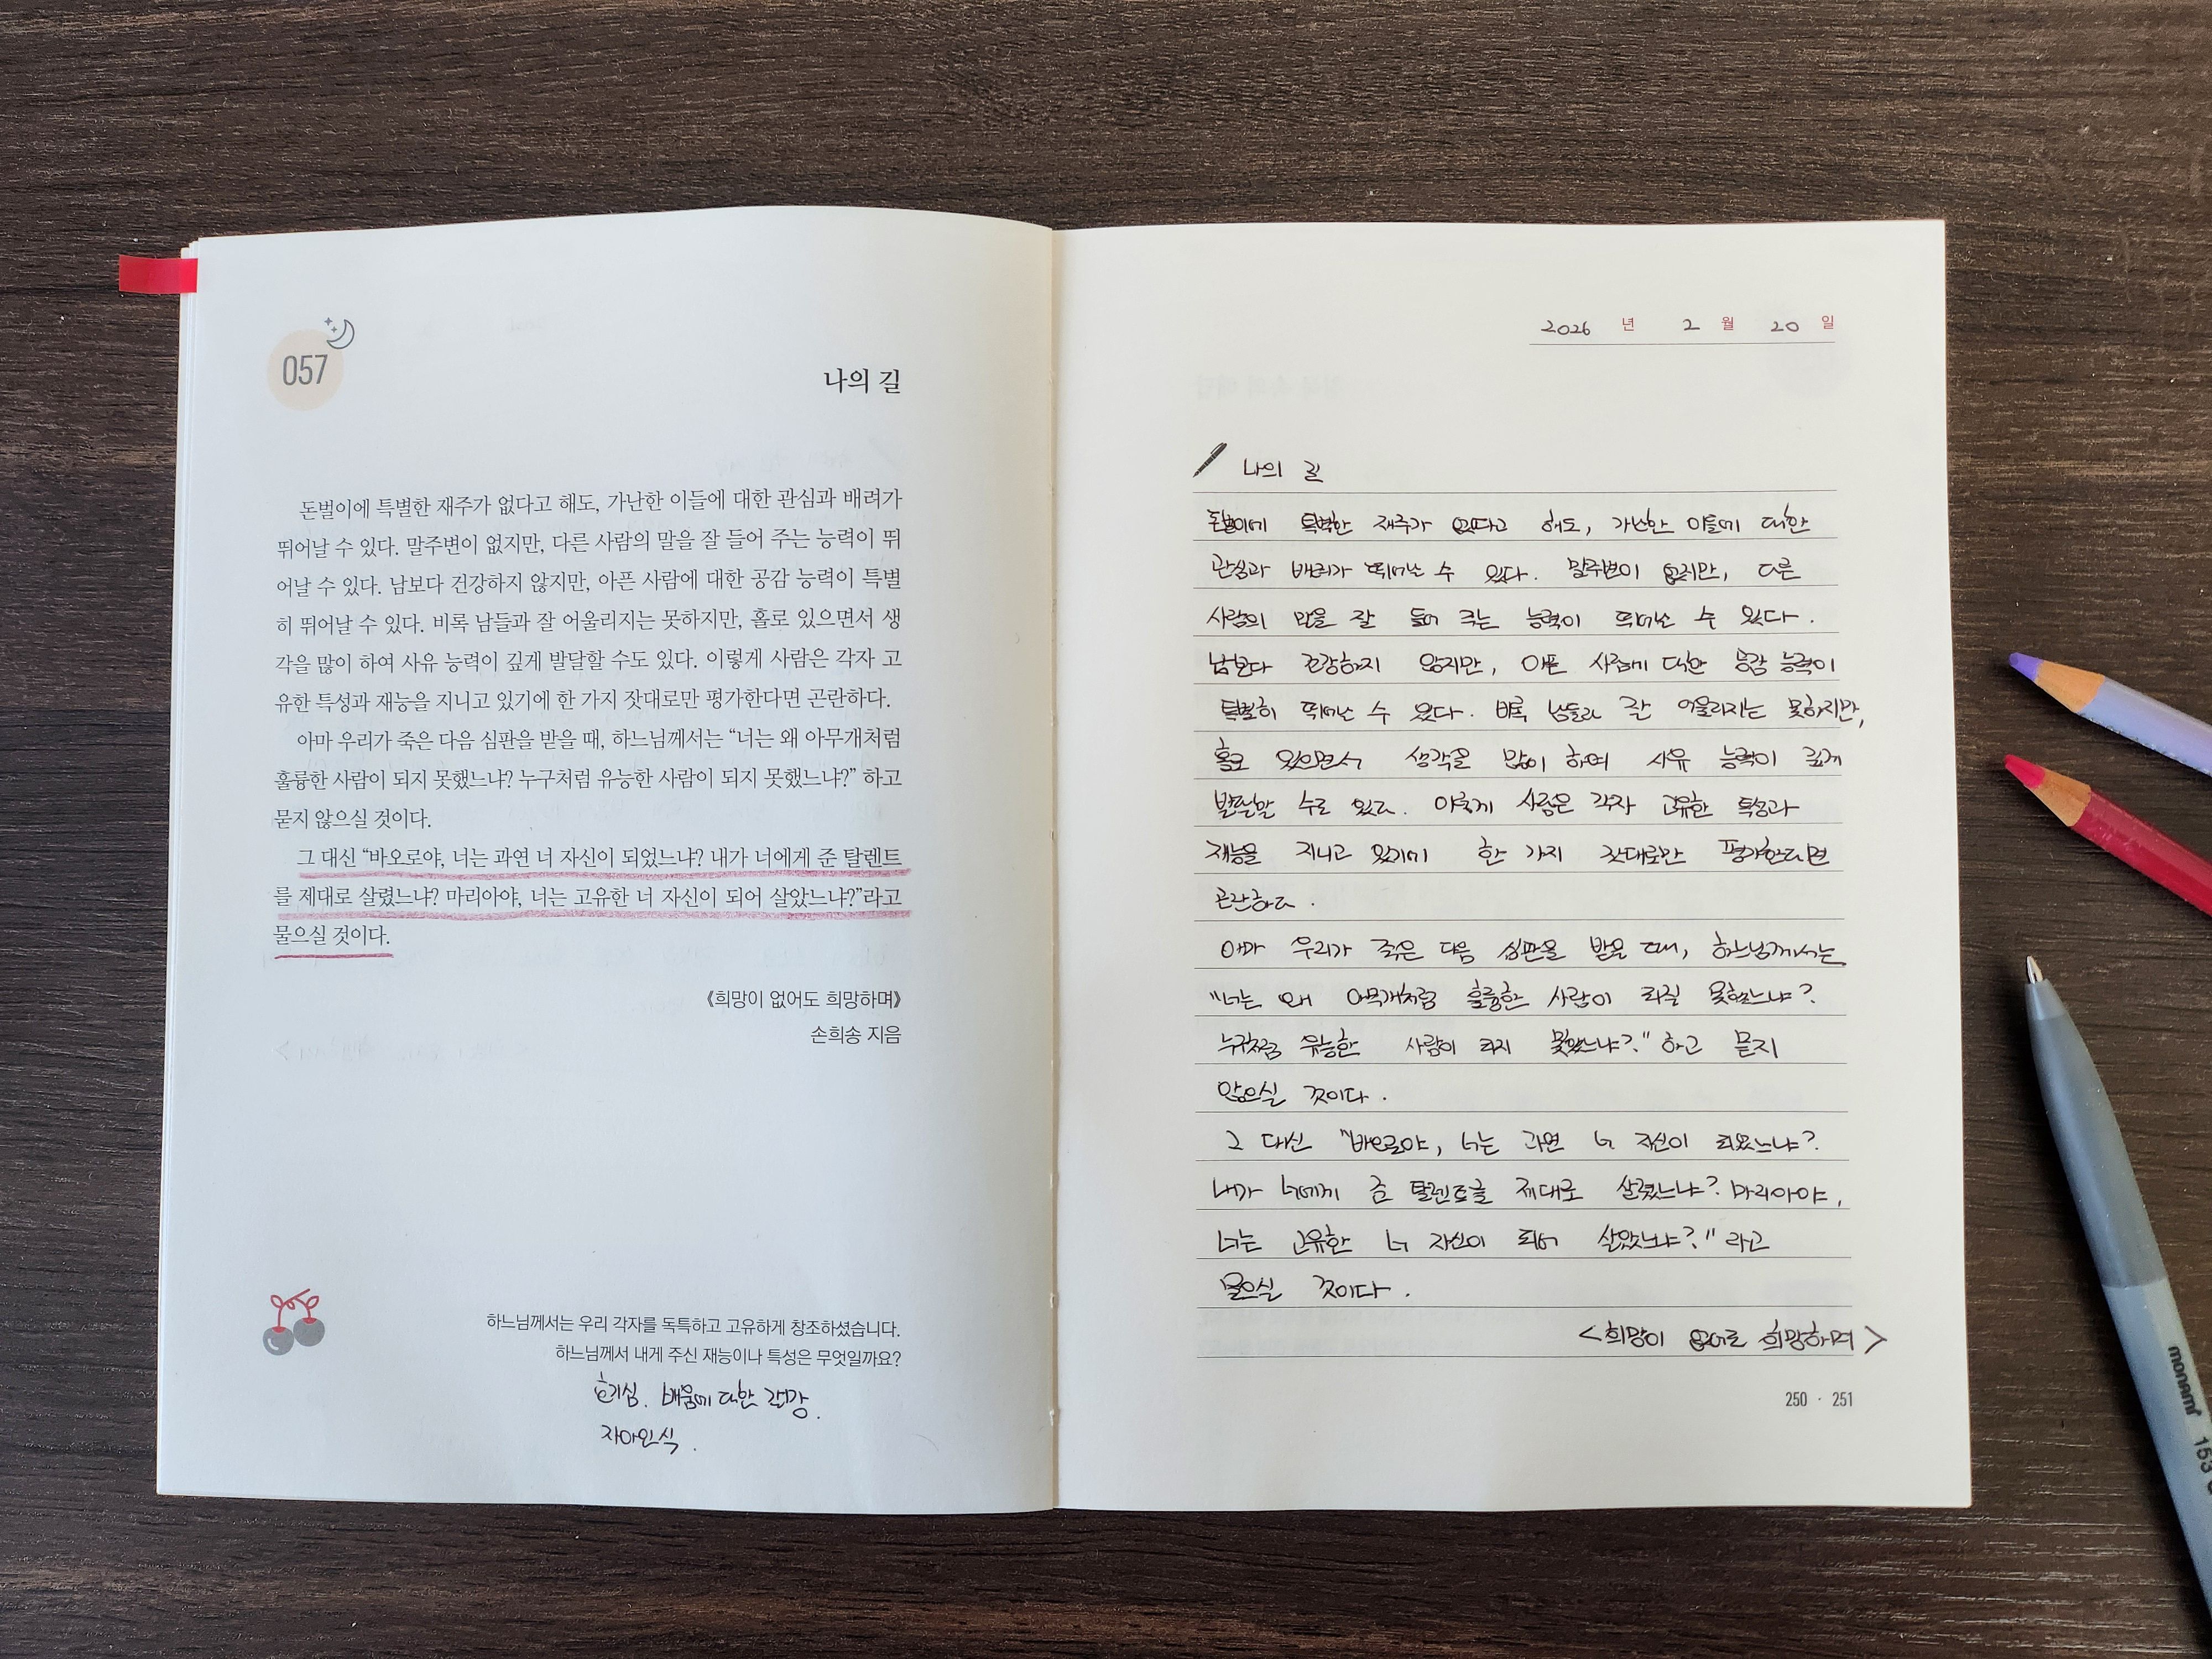 057
나의 길
돈벌이에 특별한 재주가 없다고 해도, 가난한 이들에 대한 관심과 배려가
뛰어날 수 있다. 말주변이 없지만, 다른 사람의 말을 잘 들어 주는 능력이 뛰
어날 수 있다. 남보다 건강하지 않지만, 아픈 사람에 대한 공감 능력이 특별
히 뛰어날 수 있다. 비록 남들과 잘 어울리지는 못하지만, 홀로 있으면서 생
각을 많이 하여 사유 능력이 깊게 발달할 수도 있다. 이렇게 사람은 각자 고
유한 특성과 재능을 지니고 있기에 한 가지 잣대로만 평가한다면 곤란하다.
아마 우리가 죽은 다음 심판을 받을 때, 하느님께서는 “너는 왜 아무개처럼
훌륭한 사람이 되지 못했느냐? 누구처럼 유능한 사람이 되지 못했느냐?” 하고
묻지 않으실 것이다.
그 대신 “바오로야, 너는 과연 너 자신이 되었느냐? 내가 너에게 준 탈렌트
를 제대로 살렸느냐? 마리아야, 너는 고유한 너 자신이 되어 살았느냐?”라고
물으실 것이다.
《희망이 없어도 희망하며》
손희송 지음
하느님께서는 우리 각자를 독특하고 고유하게 창조하셨습니다.
하느님께서 내게 주신 재능이나 특성은 무엇일까요?
호기심. 배움에 대한 갈망.
자아인식.
2026 년 2 월 20 일
나의 길
돈벌이에 특별한 재주가 없다고 해도, 가난한 이들에 대한
관심과 배려가 뛰어날 수 있다. 말주변이 없지만, 다른
사람의 말을 잘 들어 주는 능력이 뛰어날 수 있다.
남보다 건강하지 않지만, 아픈 사람에 대한 공감 능력이
특별히 뛰어날 수 있다. 비록 남들과 잘 어울리지는 못하지만,
홀로 있으면서 생각을 많이 하여 사유 능력이 깊게
발달할 수도 있다. 이렇게 사람은 각자 고유한 특성과
재능을 지니고 있기에 한 가지 잣대로만 평가한다면
곤란하다.
아마 우리가 죽은 다음 심판을 받을 때, 하느님께서는
"너는 왜 아무개처럼 훌륭한 사람이 되질 못했느냐?
누구처럼 유능한 사람이 되지 못했느냐?" 하고 묻지
않으실 것이다.
그 대신 "바오로야, 너는 과연 너 자신이 되었느냐?
내가 너에게 준 탈렌트를 제대로 살렸느냐? 마리아야,
너는 고유한 너 자신이 되어 살았느냐?" 라고
물으실 것이다.
<희망이 없어도 희망하며>
250 · 251
monami 153